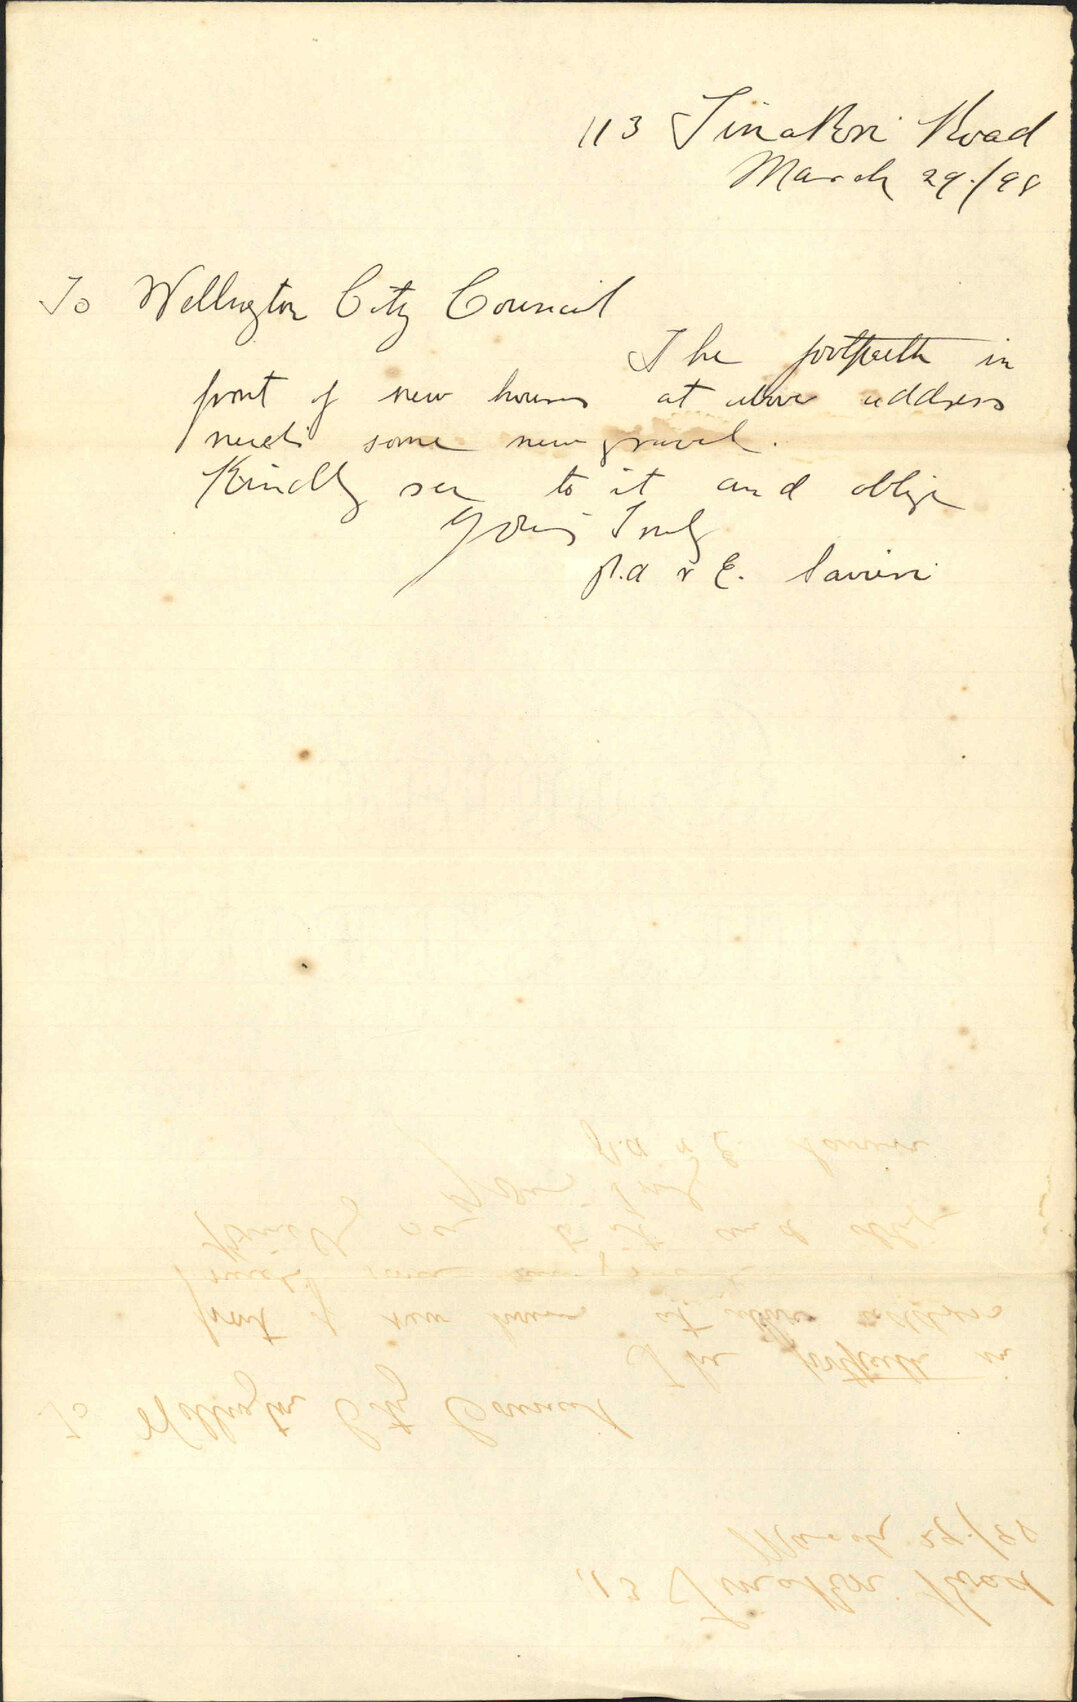 113 Tinakori Road
March 29./98
To Wellington City Council
The footpath in
front of new houses at above address
needs some new gravel.
Kindly see to it and oblige
Yours Truly
& E.